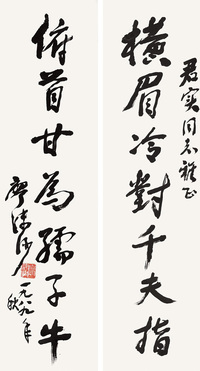 君实同志雅正
橫眉冷對千夫指
俯首甘為孺子牛
廖沫沙
一九八九年秋